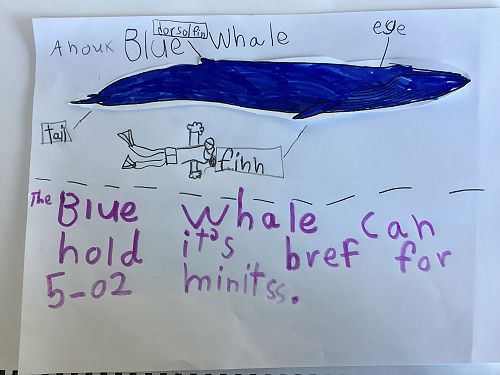 dorsolfin
Anouk Blue Whale
eye
tail
finn
The Blue Whale can
hold it's bref for
5-02 minitss.